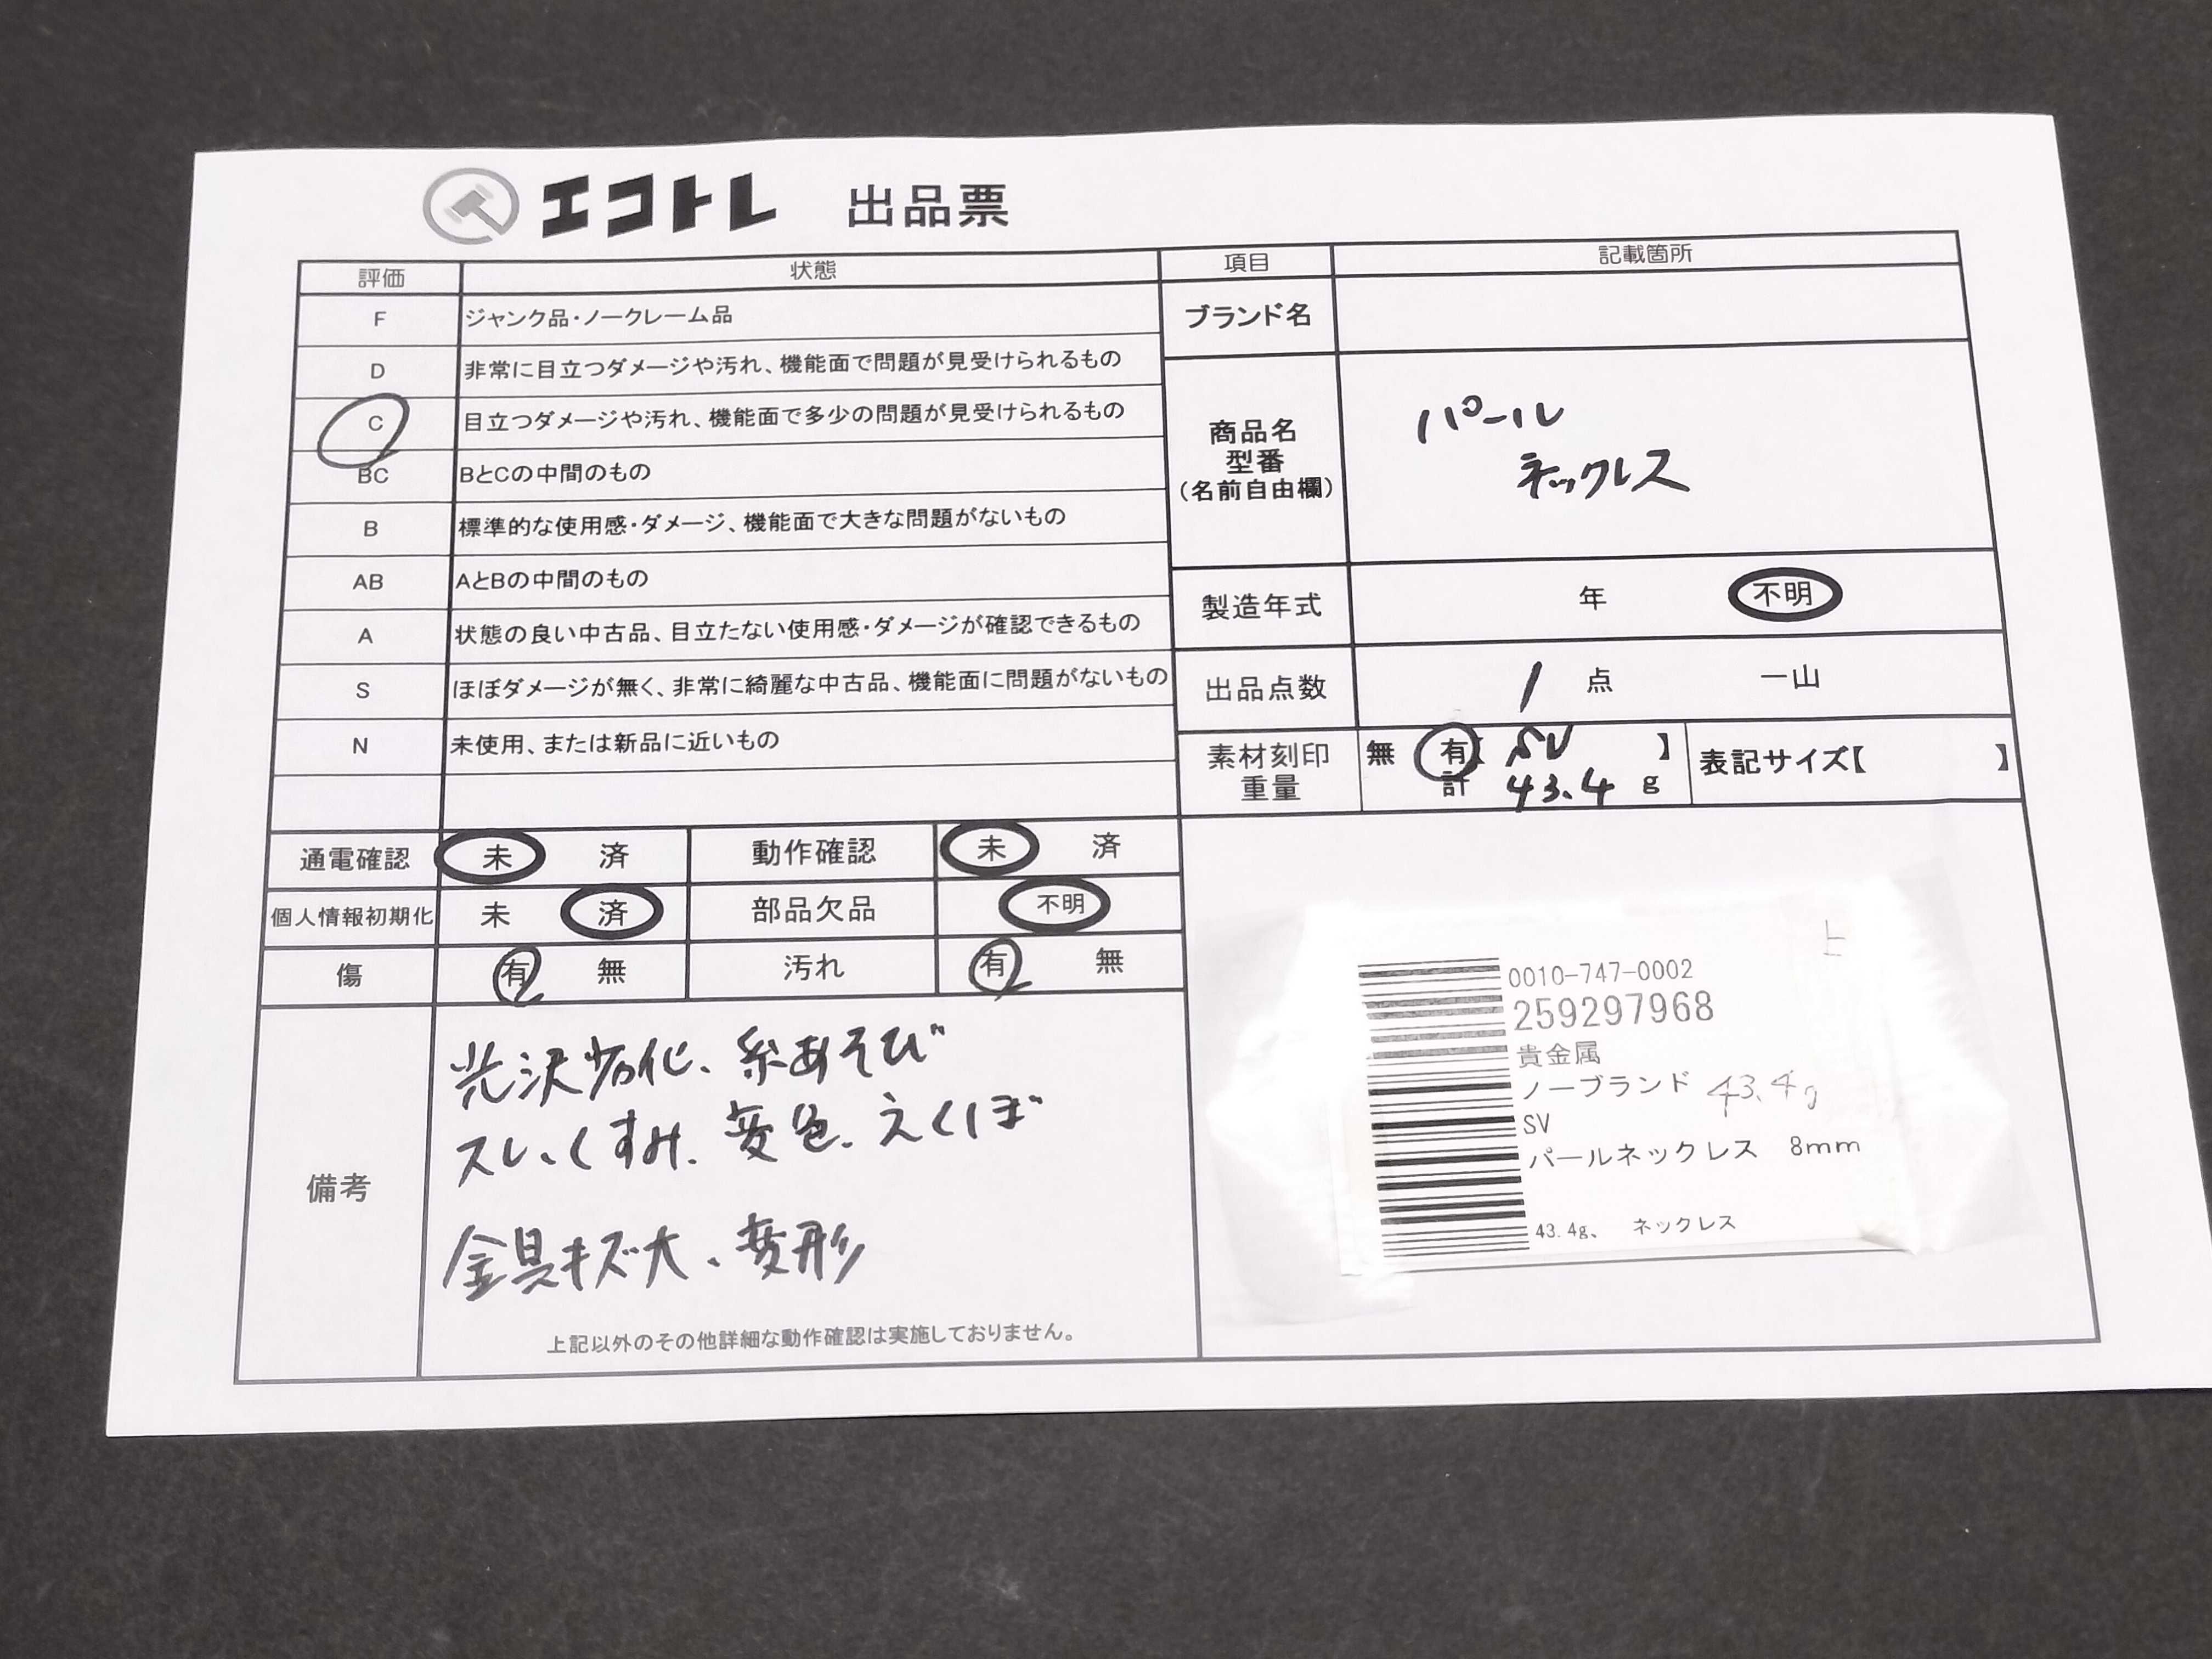 エコトレ 出品票
評価 状態 項目 記載箇所
F ジャンク品・ノークレーム品
D 非常に目立つダメージや汚れ、機能面で問題が見受けられるもの
C 目立つダメージや汚れ、機能面で多少の問題が見受けられるもの
BC BとCの中間のもの
B 標準的な使用感・ダメージ、機能面で大きな問題がないもの
AB AとBの中間のもの
A 状態の良い中古品、目立たない使用感・ダメージが確認できるもの
S ほぼダメージが無く、非常に綺麗な中古品、機能面に問題がないもの
N 未使用、または新品に近いもの
ブランド名
商品名
型番
(名前自由欄)
パール
ネックレス
製造年式 年 不明
出品点数 1 点 一山
素材刻印
重量
無 有【 SV 】
計 43.4 g
表記サイズ【 】
通電確認 未 済 動作確認 未 済
個人情報初期化 未 済 部品欠品 不明
傷 有 無 汚れ 有 無
備考
光沢劣化、糸あそび
スレ、くすみ、変色、えくぼ
金具キズ大、変形
上記以外のその他詳細な動作確認は実施しておりません。
上
0010-747-0002
259297968
貴金属
ノーブランド 43.4g
SV
パールネックレス 8mm
43.4g、 ネックレス